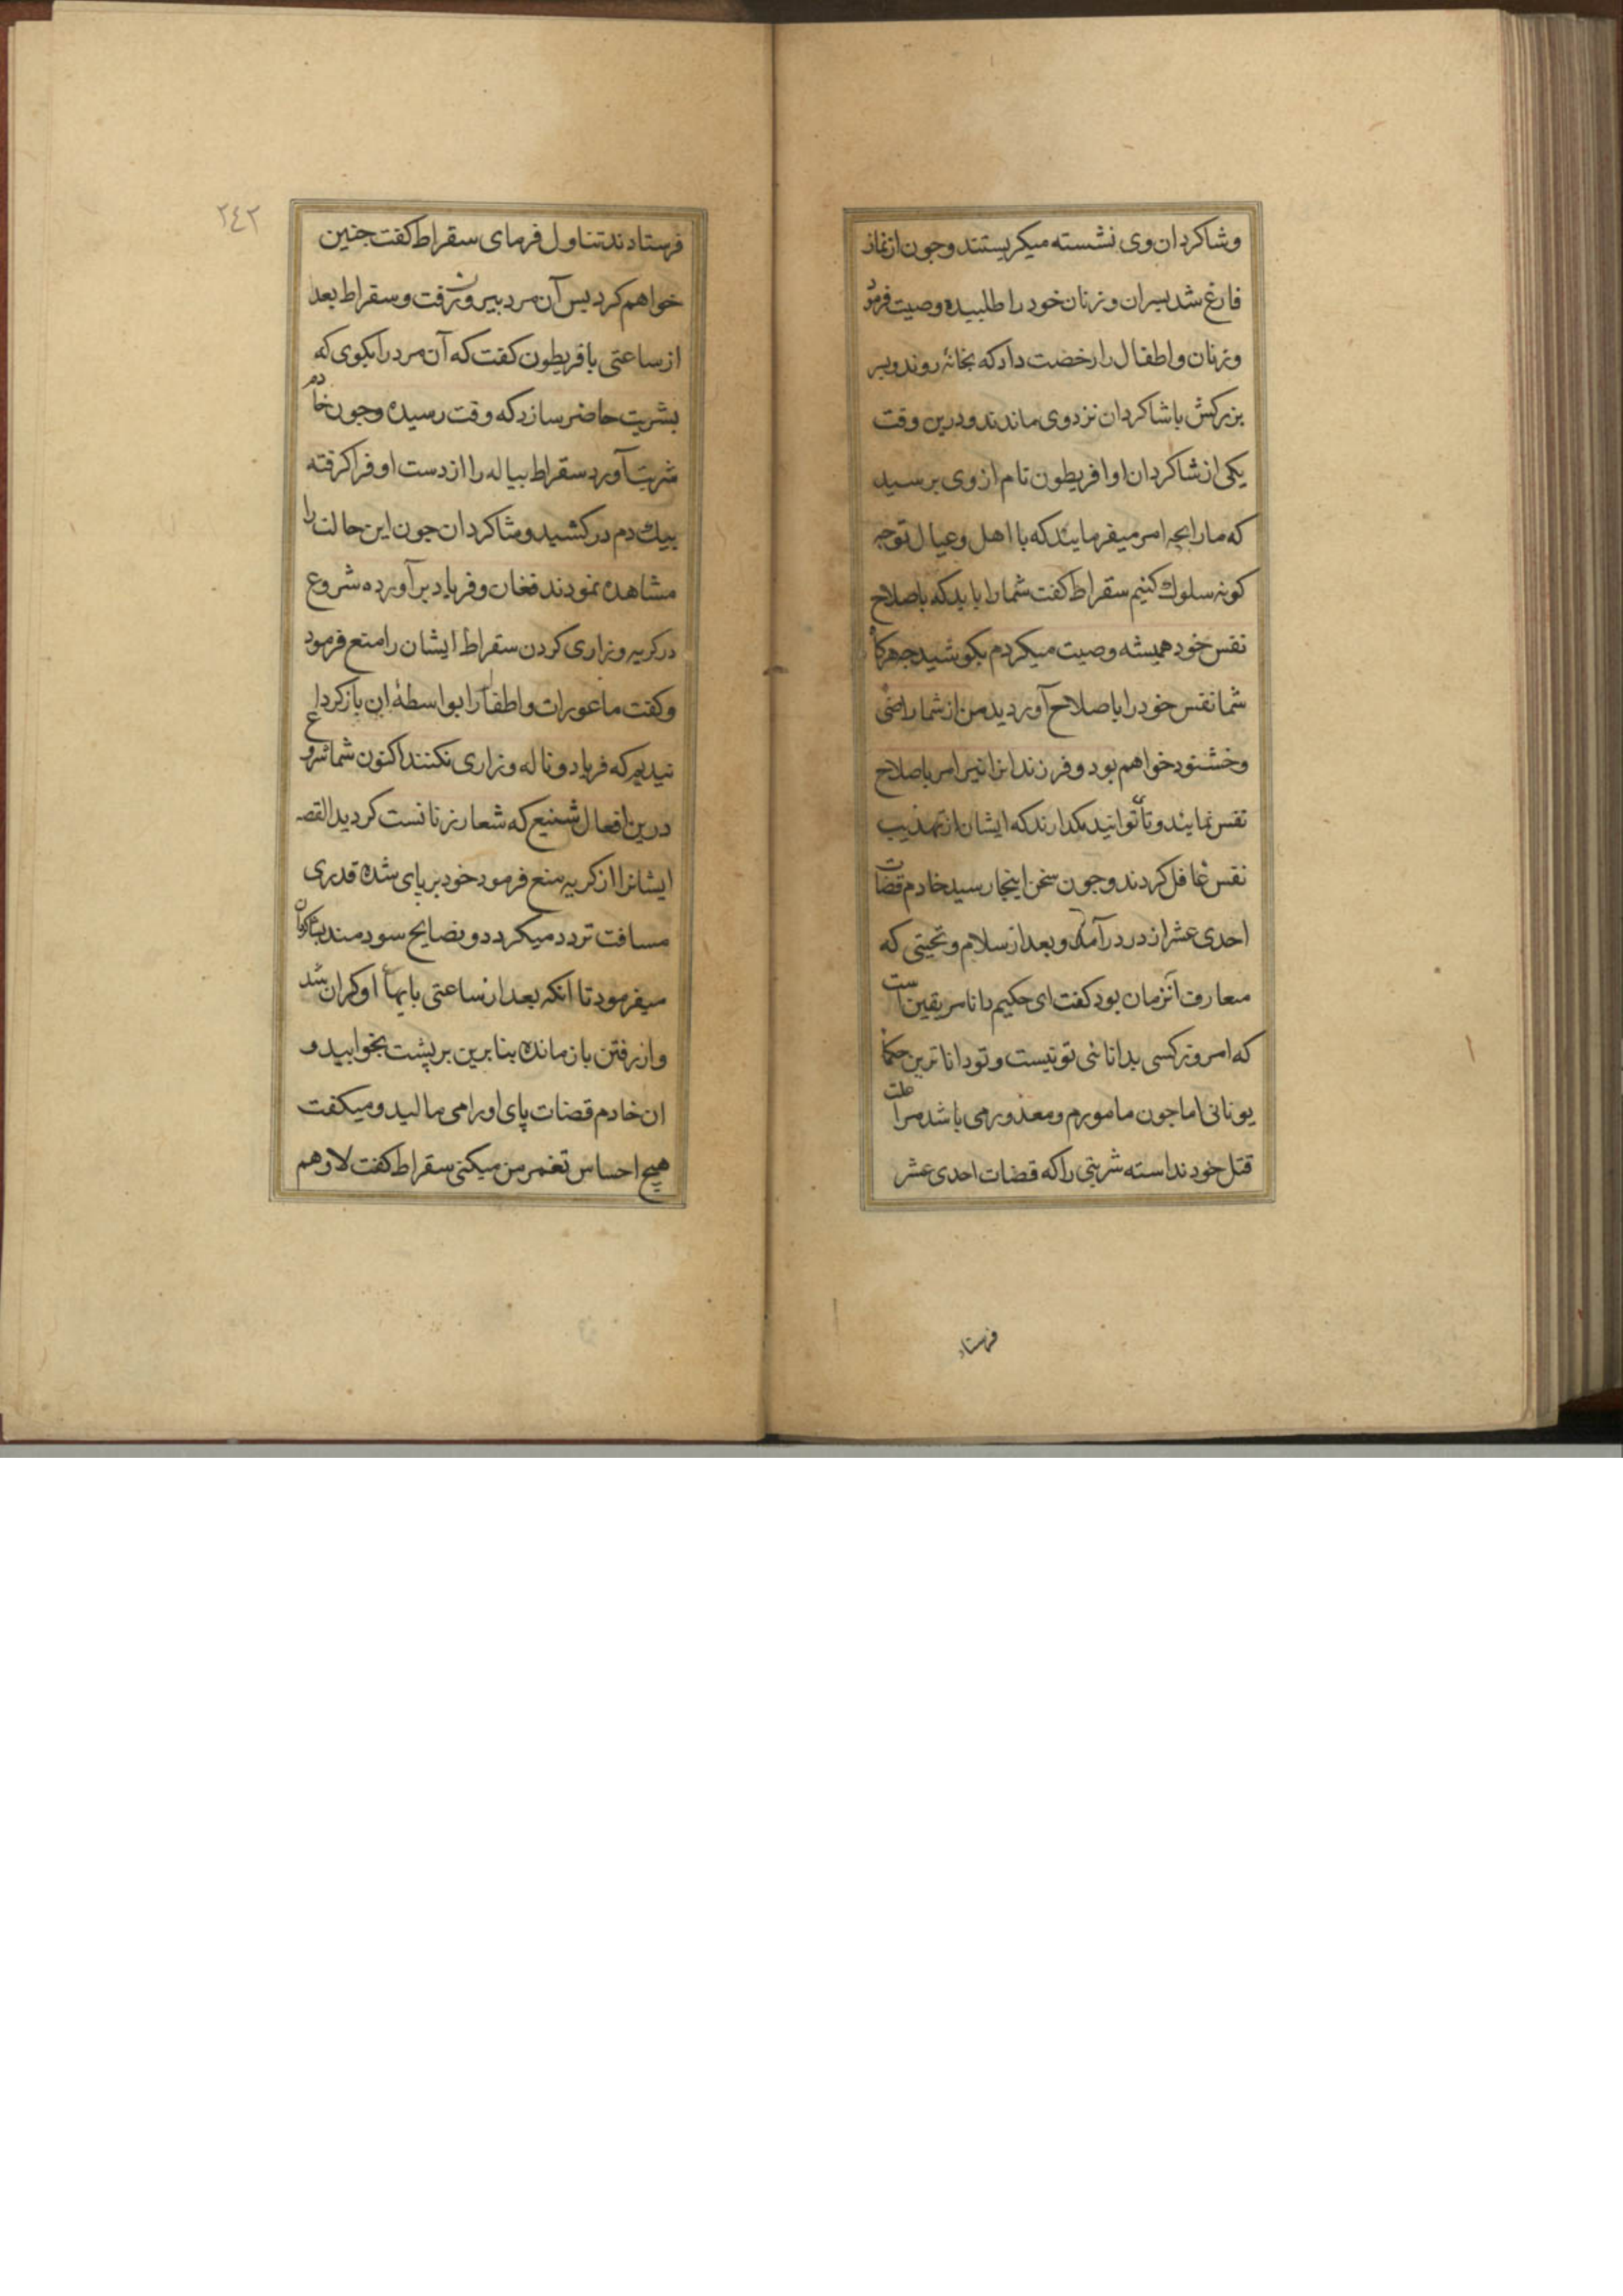 وشاکردان وی نشسته میکریستند وجون از نماز
فارغ شد بسران وزنان خود را طلبیده وصیت فرمود
وزنان واطفال را رخصت داد که بخانه روند وبسر
بزرکش با شاکردان نزد وی ماندند ودرین وقت
یکی از شاکردان او افریطون نام از وی برسید
که مارا بچه امر میفرمایند که با اهل وعیال توجه
کونه سلوك کنیم سقراط کفت شما را باید که باصلاح
نفس خود همیشه وصیت میکردم بکوشید جه هرکا
شما نفس خود را باصلاح آوردید من از شما راضی
وخشنود خواهم بود وفرزندانرا نیز امر باصلاح
نفس نمایند وتا توانید مکذارند که ایشان از تهذیب
نفس غافل کردند وجون سخن اینجا رسید خادم قضات
احدی عشر از در درآمد وبعد از سلام وتحیتی که
معارف آنزمان بود کفت ای حکیم دانا مر یقین است
که امروز کسی بدانائی تو نیست وتو داناترین حکما
یونانی اما جون مامورم ومعذور می باشد مرا علت
قتل خود نداسته شربتی را که قضات احدی عشر
فرستاد
٢٤٢
فرستادند تناول فرمای سقراط کفت جنین
خواهم کرد بس آن مرد بیرون رفت وسقراط بعد
از ساعتی با قریطون کفت که آن مرد را بکوی که
بشربت حاضر سازد که وقت رسیده وجون خادم
شربت آورد سقراط بیاله را از دست او فرا کرفته
بیك دم درکشید وشاکردان جون این حالت را
مشاهده نمودند فغان وفریاد برآورده شروع
در کریه وزاری کردن سقراط ایشان را منع فرمود
وکفت ما عورات واطفال را بواسطهٔ این باز کردا
نیدیم که فریاد وناله وزاری نکنند اکنون شما شروع
درین افعال شنیع که شعار زنانست کردید القصه
ایشانرا از کریه منع فرمود خود بر بای شده قدری
مسافت تردد میکرد ونصایح سودمند بشاکردان
میفرمود تا انکه بعد از ساعتی بایهاء او کران شد
واز رفتن باز مانده بنابرین بر پشت بخوابید و
ان خادم قضات پای او را می مالید ومیکفت
هیچ احساس تغمر من میکنی سقراط کفت لا وهم